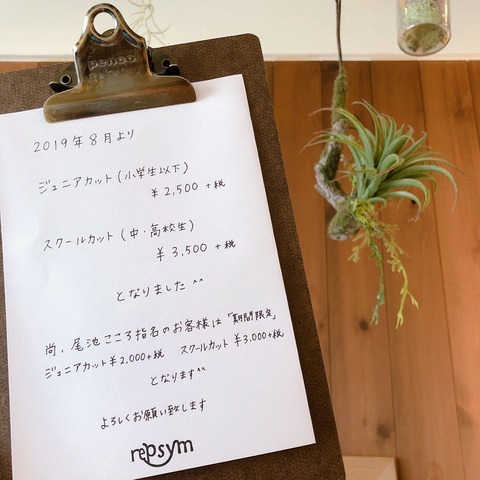 penco
2019年8月より
ジュニアカット(小学生以下)
¥2,500 +税
スクールカット(中・高校生)
¥3,500 +税
となりました^^
尚、尾池こころ指名のお客様は「期間限定」
ジュニアカット¥2,000+税 スクールカット¥3,000+税
となります^^
よろしくお願い致します
repsym